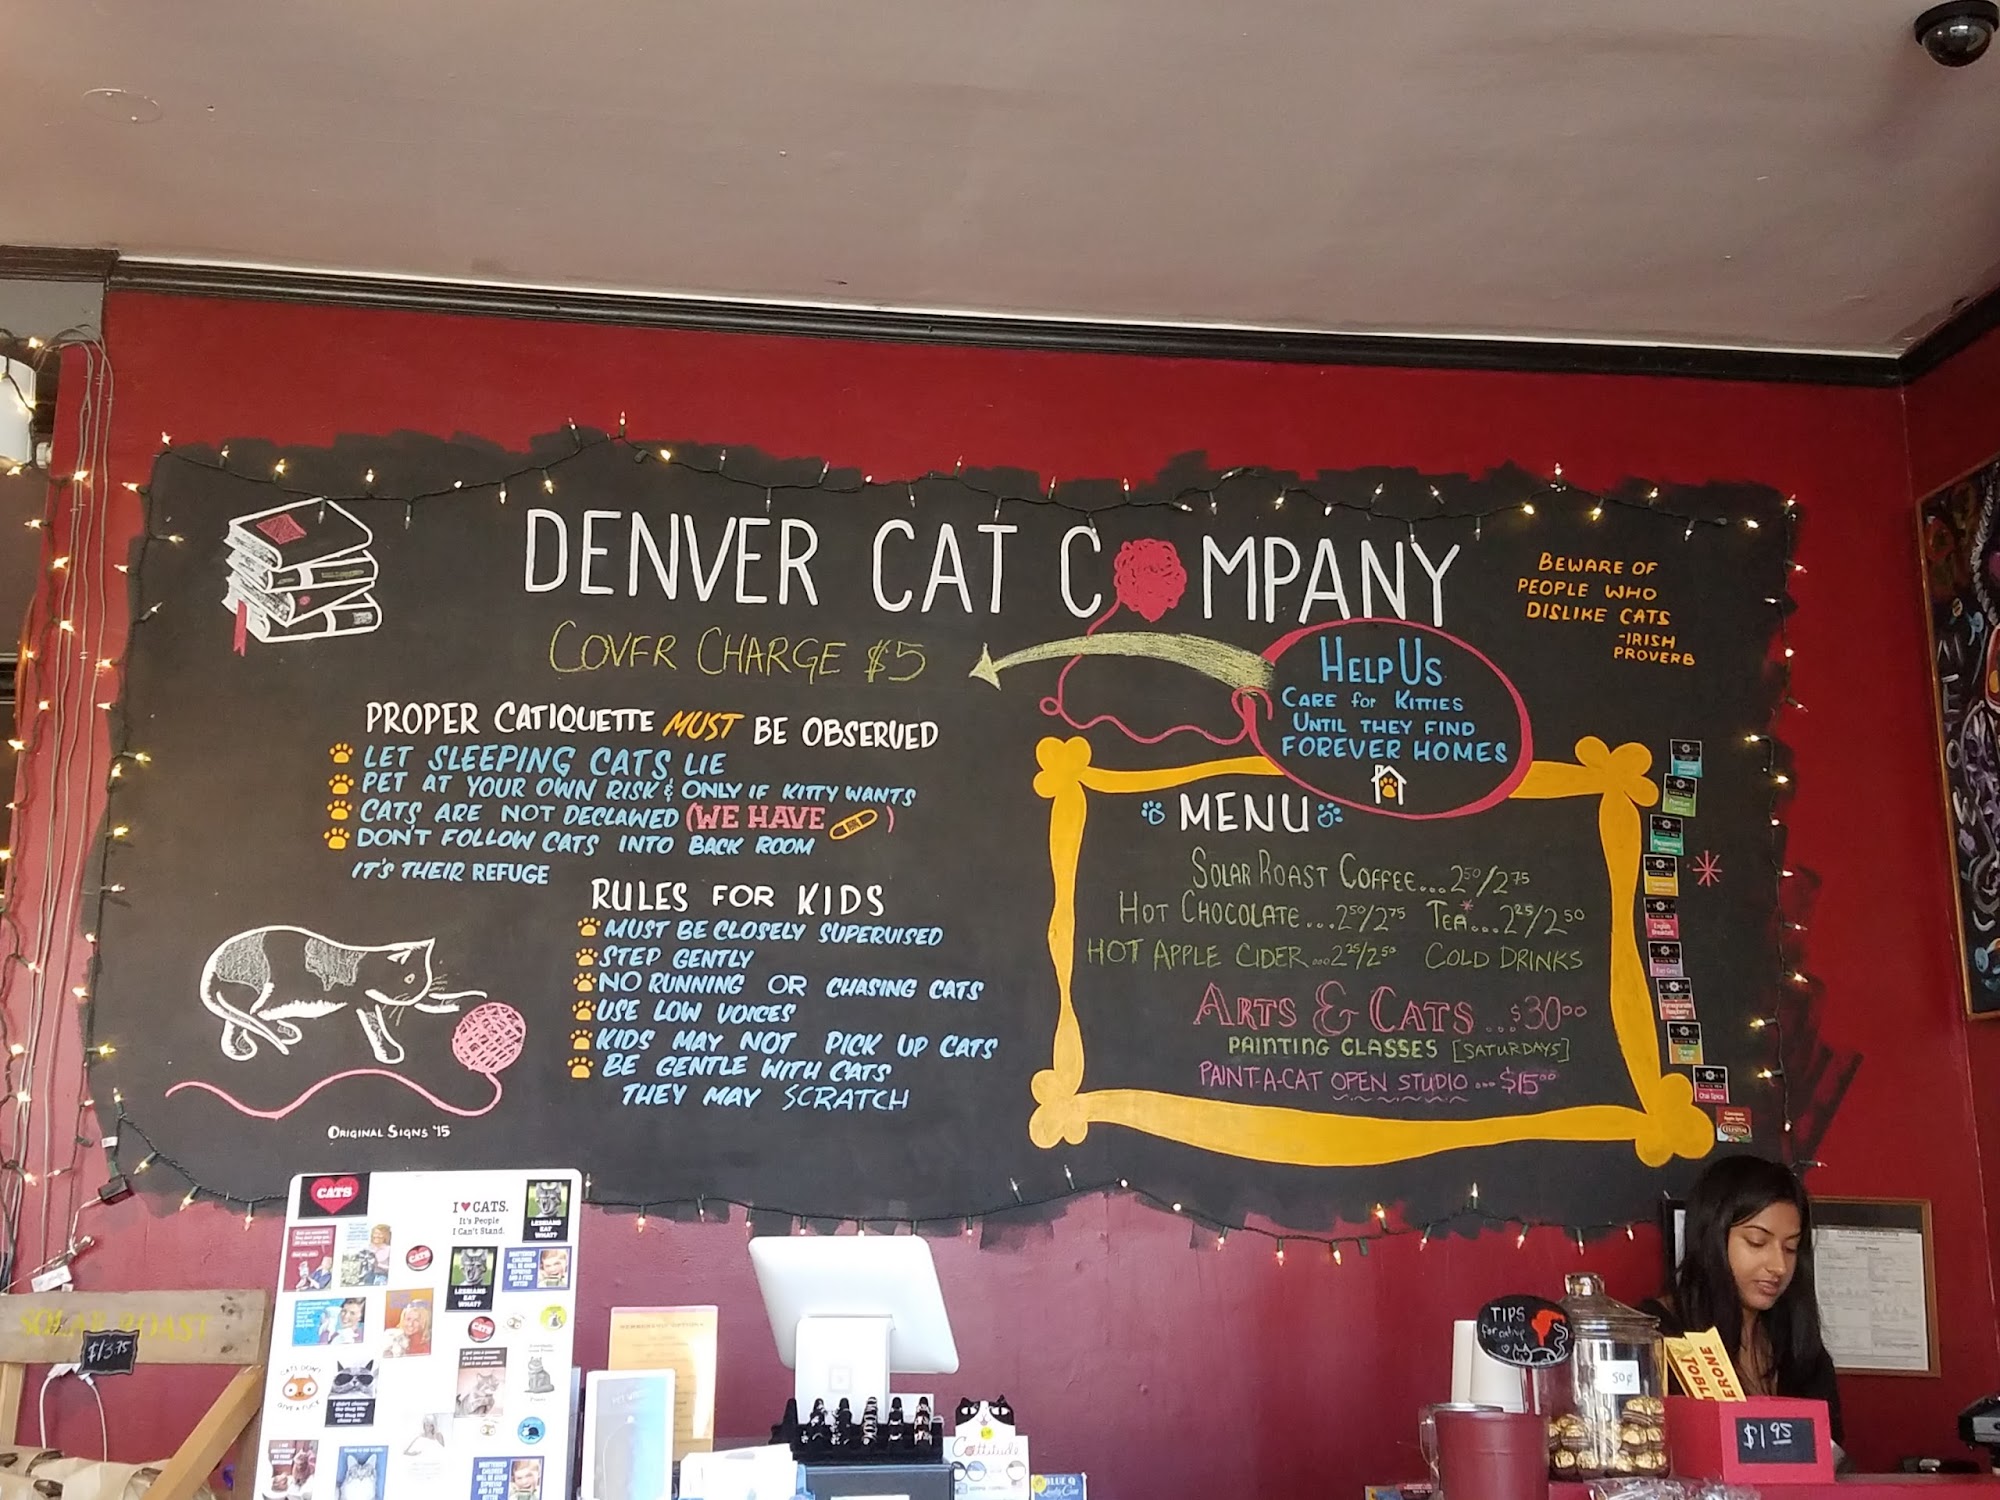 DENVER CAT COMPANY
COVER CHARGE $5
BEWARE OF
PEOPLE WHO
DISLIKE CATS
-IRISH
PROVERB
HELP US
CARE for KITTIES
UNTIL THEY FIND
FOREVER HOMES
PROPER CATIQUETTE MUST BE OBSERVED
LET SLEEPING CATS LIE
PET AT YOUR OWN RISK & ONLY IF KITTY WANTS
CATS ARE NOT DECLAWED (WE HAVE )
DON'T FOLLOW CATS INTO BACK ROOM
IT'S THEIR REFUGE
RULES FOR KIDS
MUST BE CLOSELY SUPERVISED
STEP GENTLY
NO RUNNING OR CHASING CATS
USE LOW VOICES
KIDS MAY NOT PICK UP CATS
BE GENTLE WITH CATS
THEY MAY SCRATCH
ORIGINAL SIGNS '15
MENU
SOLAR ROAST COFFEE...2.50/2.75
HOT CHOCOLATE...2.50/2.75 TEA*...2.25/2.50
HOT APPLE CIDER...2.25/2.50 COLD DRINKS
ARTS & CATS...$30.00
PAINTING CLASSES [SATURDAYS]
PAINT-A-CAT OPEN STUDIO...$15.00
*
Chai Spice
CATS
I ♥ CATS.
It's People
I Can't Stand.
LESBIANS
EAT
WHAT?
CATS
LESBIANS
EAT
WHAT?
CATS
CATS DON'T
SOLAR ROAST
$13.75
Cattitude
TIPS
50¢
TOBLERONE
$1.95